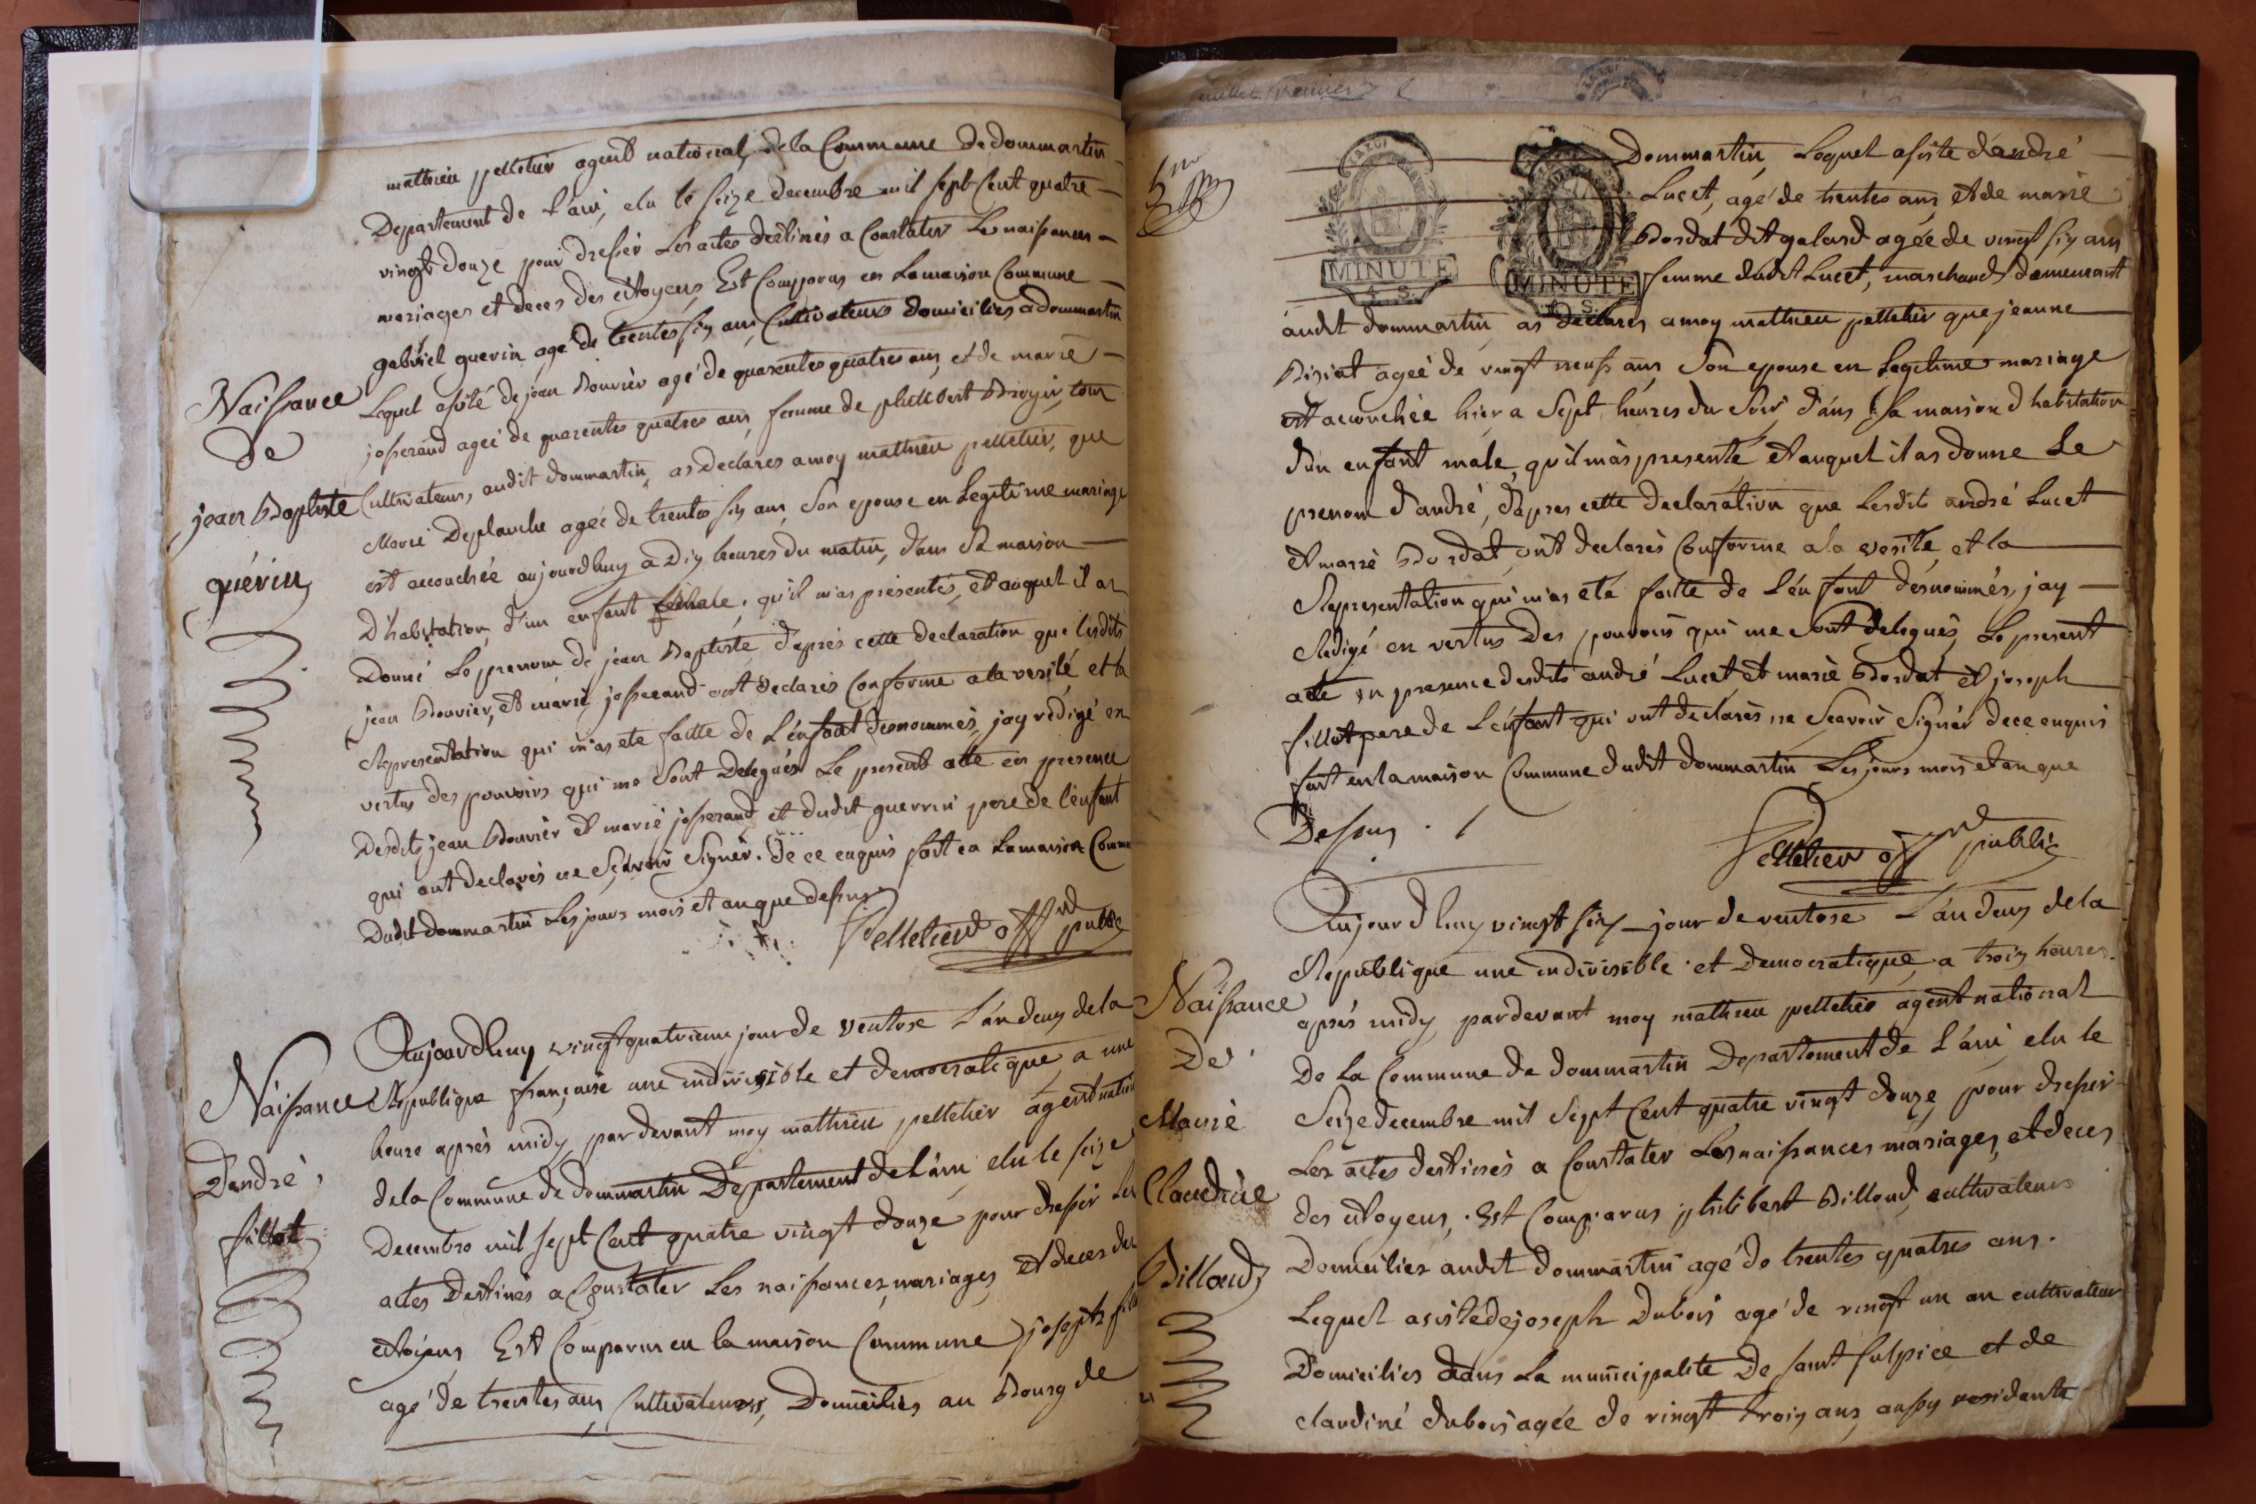 mathieu pelletier agent national de la Commune de dommartin
Departement de L'ain, elu le seize decembre mil sept Cent quatre
vingt douze pour dresser Les actes destinés a Constater Les naissances
mariages et deces des citoyens Est Comparus en La maison Commune
gabriel guerin agé de trentes six ans Cultivateurs domiciliés a dommartin
Lequel asisté de jean Bouvier agé de quarentes quatres ans, et de marie
josserand ageé de quarentes quatres ans, femme de philibert Broyer, tous
Cultivateurs, audit dommartin, as declarés a moy mathieu pelletier, que
Marie Deplanche ageé de trentes six ans, Son epouse en Legitime mariage
est accouchée aujourdhuy a Dix heures du matin, dans Sa maison
D'habitation, d'un enfant male, qu'il m'as présentés, et auquel il as
Donné Le prenom de jean Baptiste d'apres cette declaration que lesdits
jean Bouvier, et marie josserand ont declarés Conforme a la verité et la
Representation qui m'as eté faitte de L'enfant denommés, jay redigé en
vertus des pouvoirs qui me Sont Delegués Le present acte en presence
Desdits jean Bouvier et marie josserand et dudit guerrin pere de l'enfant
qui ont declarés ne Sçavoir Signer. De ce enquis fait en La maison Comme
Dudit dommartin Les jours mois et an que dessus
Pelletier off public
Naissance
de
jean Baptiste
guérin
Aujourdhuy vingt quatrieme jour de ventose L'an deux de la
Republique française une indivisible et democratique, a une
heure après midy, par devant moy mathieu pelletier agent nation
de la Commune de dommartin Departement de l'ain, elu le seize
Decembre mil sept Cent quatre vingt douze pour dresser Les
actes Destinés a Constater Les naissances, mariages, et deces des
citoyens Est Comparus en la maison Commune joseph fillo
agé de trentes ans, Cultivateurs, Domiciliés au Bourg de
Naissance
D'andré
fillot
MINUTE
4. S.
MINUTE
4. S.
Dommartin, Loquel asisté d'andré
Lucet, agé de trentes ans, et de marie
Bordat dit galand agée de vingt six ans
femme dudit Lucet, marchands demeurant
audit dommartin, as declarés a moy mathieu pelletier que jeanne
Bisiat ageé de vingt neufs ans, Son epouse en Legitime mariage
est accouchée hier a Sept heures du Soir dans Sa maison d'habitation
d'un enfant male, qu'il m'as presenté et auquel il as donne Le
prenom d'andré, d'apres cette declaration que Lesdits andré Lucet
et marie Bordat, ont declarés Conforme a la verité, et la
Representation qui m'as eté faitte de L'enfant desnommés, jay
Redigé en vertus Des pouvoirs qui me sont delegués, Le present
acte en presence desdits andré Lucet, et marie Bordat et joseph
fillot pere de L'enfant qui ont declarés ne Scavoir Signér de ce enquis
fait en la maison Commune dudit dommartin Les jours mois et an que
Dessus.
Pelletier off public
Aujourdhuy vingt six jour de ventose L'an deux de la
Republique une indivisible et democratique, a trois heures
aprés midy, par devant moy mathieu pelletier agent national
De La Commune de dommartin Departement de L'ain elu le
Seize decembre mil Sept Cent quatre vingt douze, pour dresser
Les actes destinés a Constater Les naissances mariages, et deces
des citoyens, Est Comparus philibert Billoud, cultivateurs
Domiciliés audit dommartin agé de trentes quatres ans.
Lequel asisté de joseph Dubois agé de vingt un an cultivateur
Domiciliés dans La municipalité De saint sulpice et de
claudine dubois agée de vingt trois ans, aussy residente
Naissance
De
Marie
Claudine
Billoud